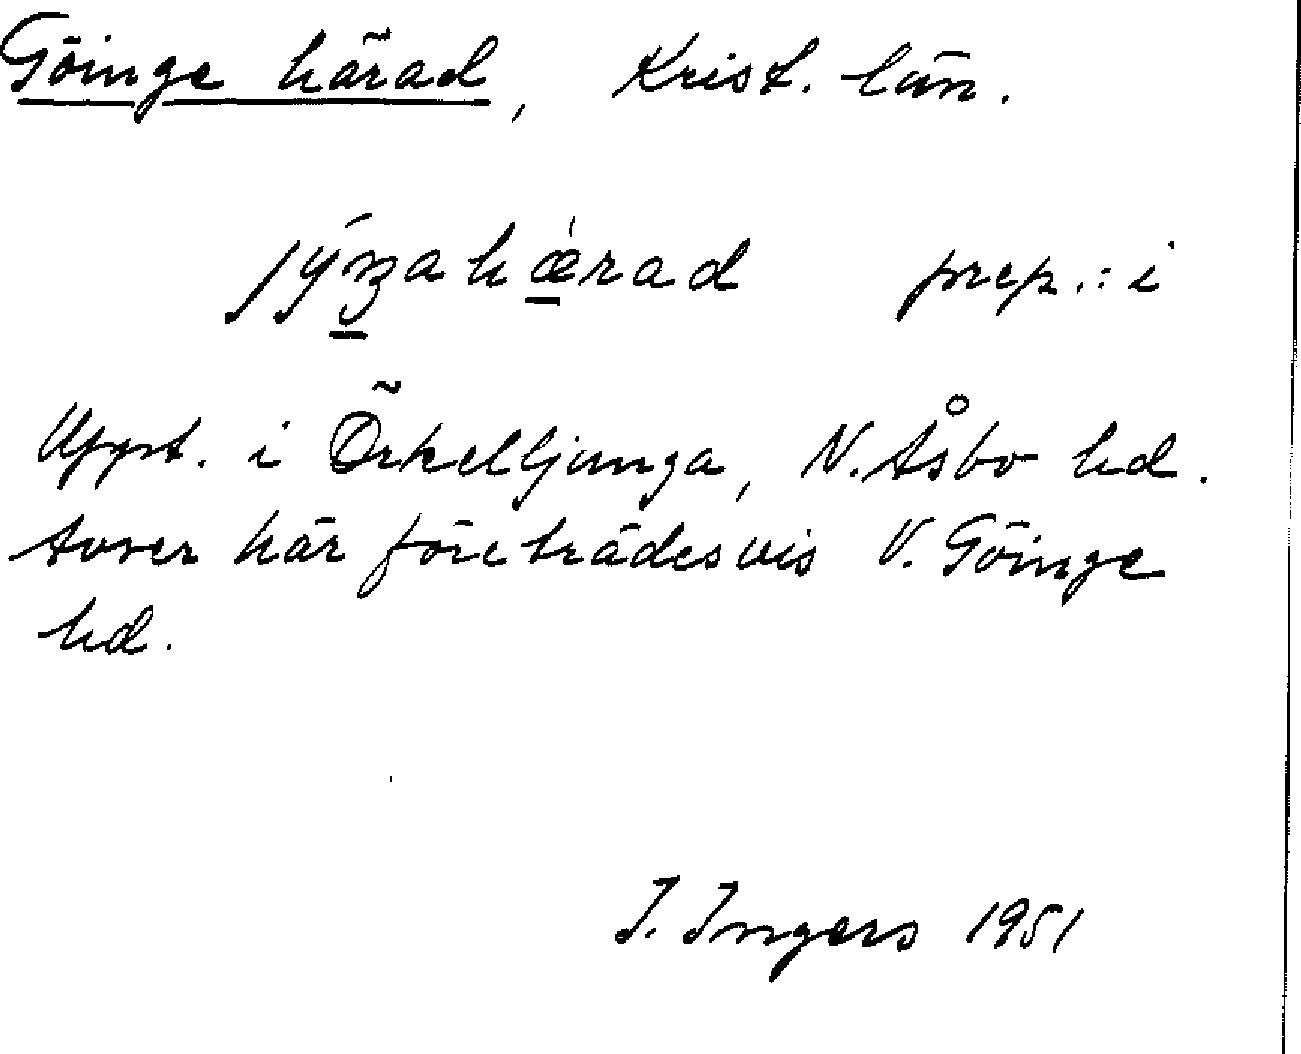 Göinge härad, Krist. län.
jýŋahǽrad prep.: i
Uppt. i Örkelljunga, N. Åsbo hd.
Avser här företrädesvis V. Göinge
hd.
I. Ingers 1951